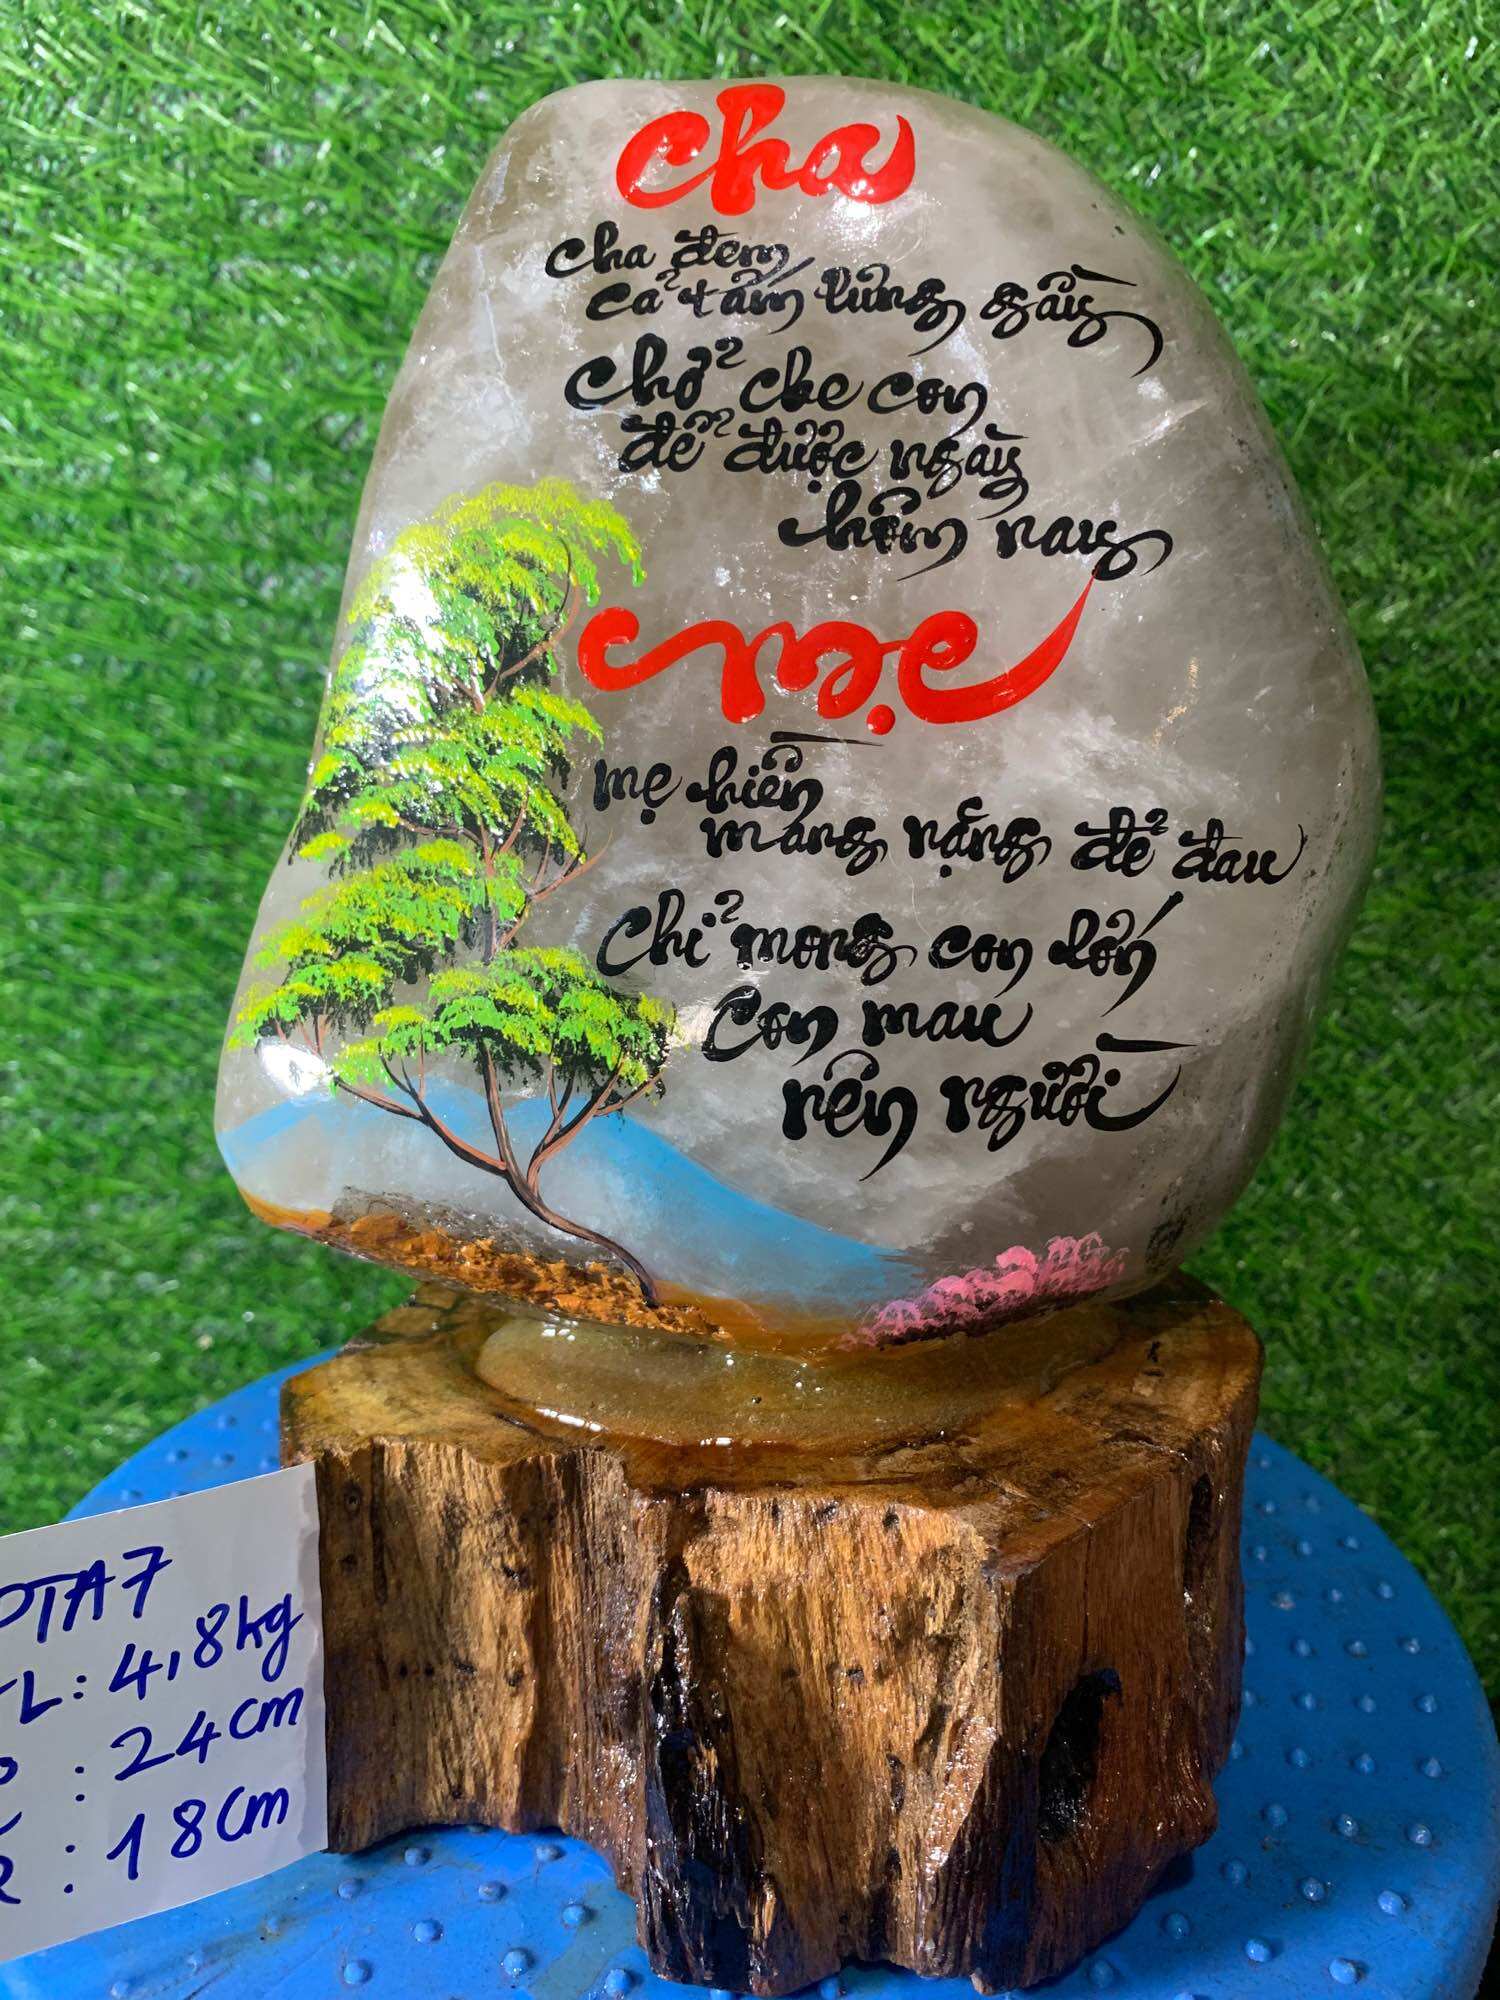 Cha
Cha đem
cả tấm lưng gầy
Chở che con
để được ngày
hôm nay
Mẹ
Mẹ hiền
mang nặng đẻ đau
Chỉ mong con lớn
con mau
nên người
TA7
L: 4,8kg
: 24cm
: 18cm